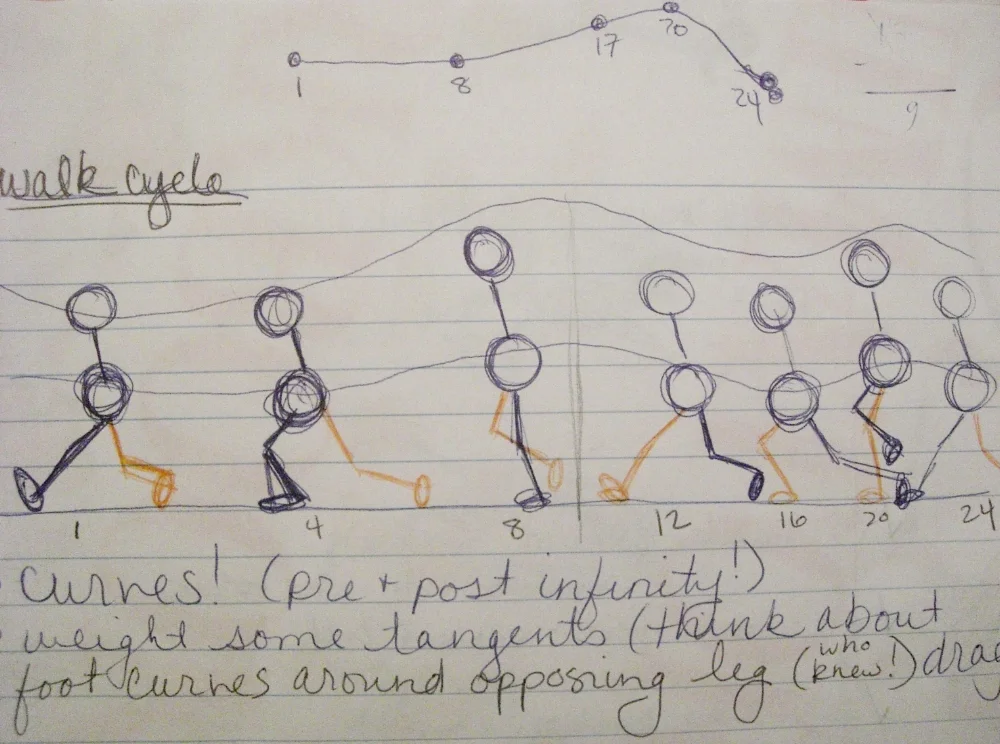 1 8 17 20 24
9
walk cycle
1 4 8 12 16 20 24
curves! (pre + post infinity!)
weight some tangents (think about
foot curves around opposing leg (who knew!) drag